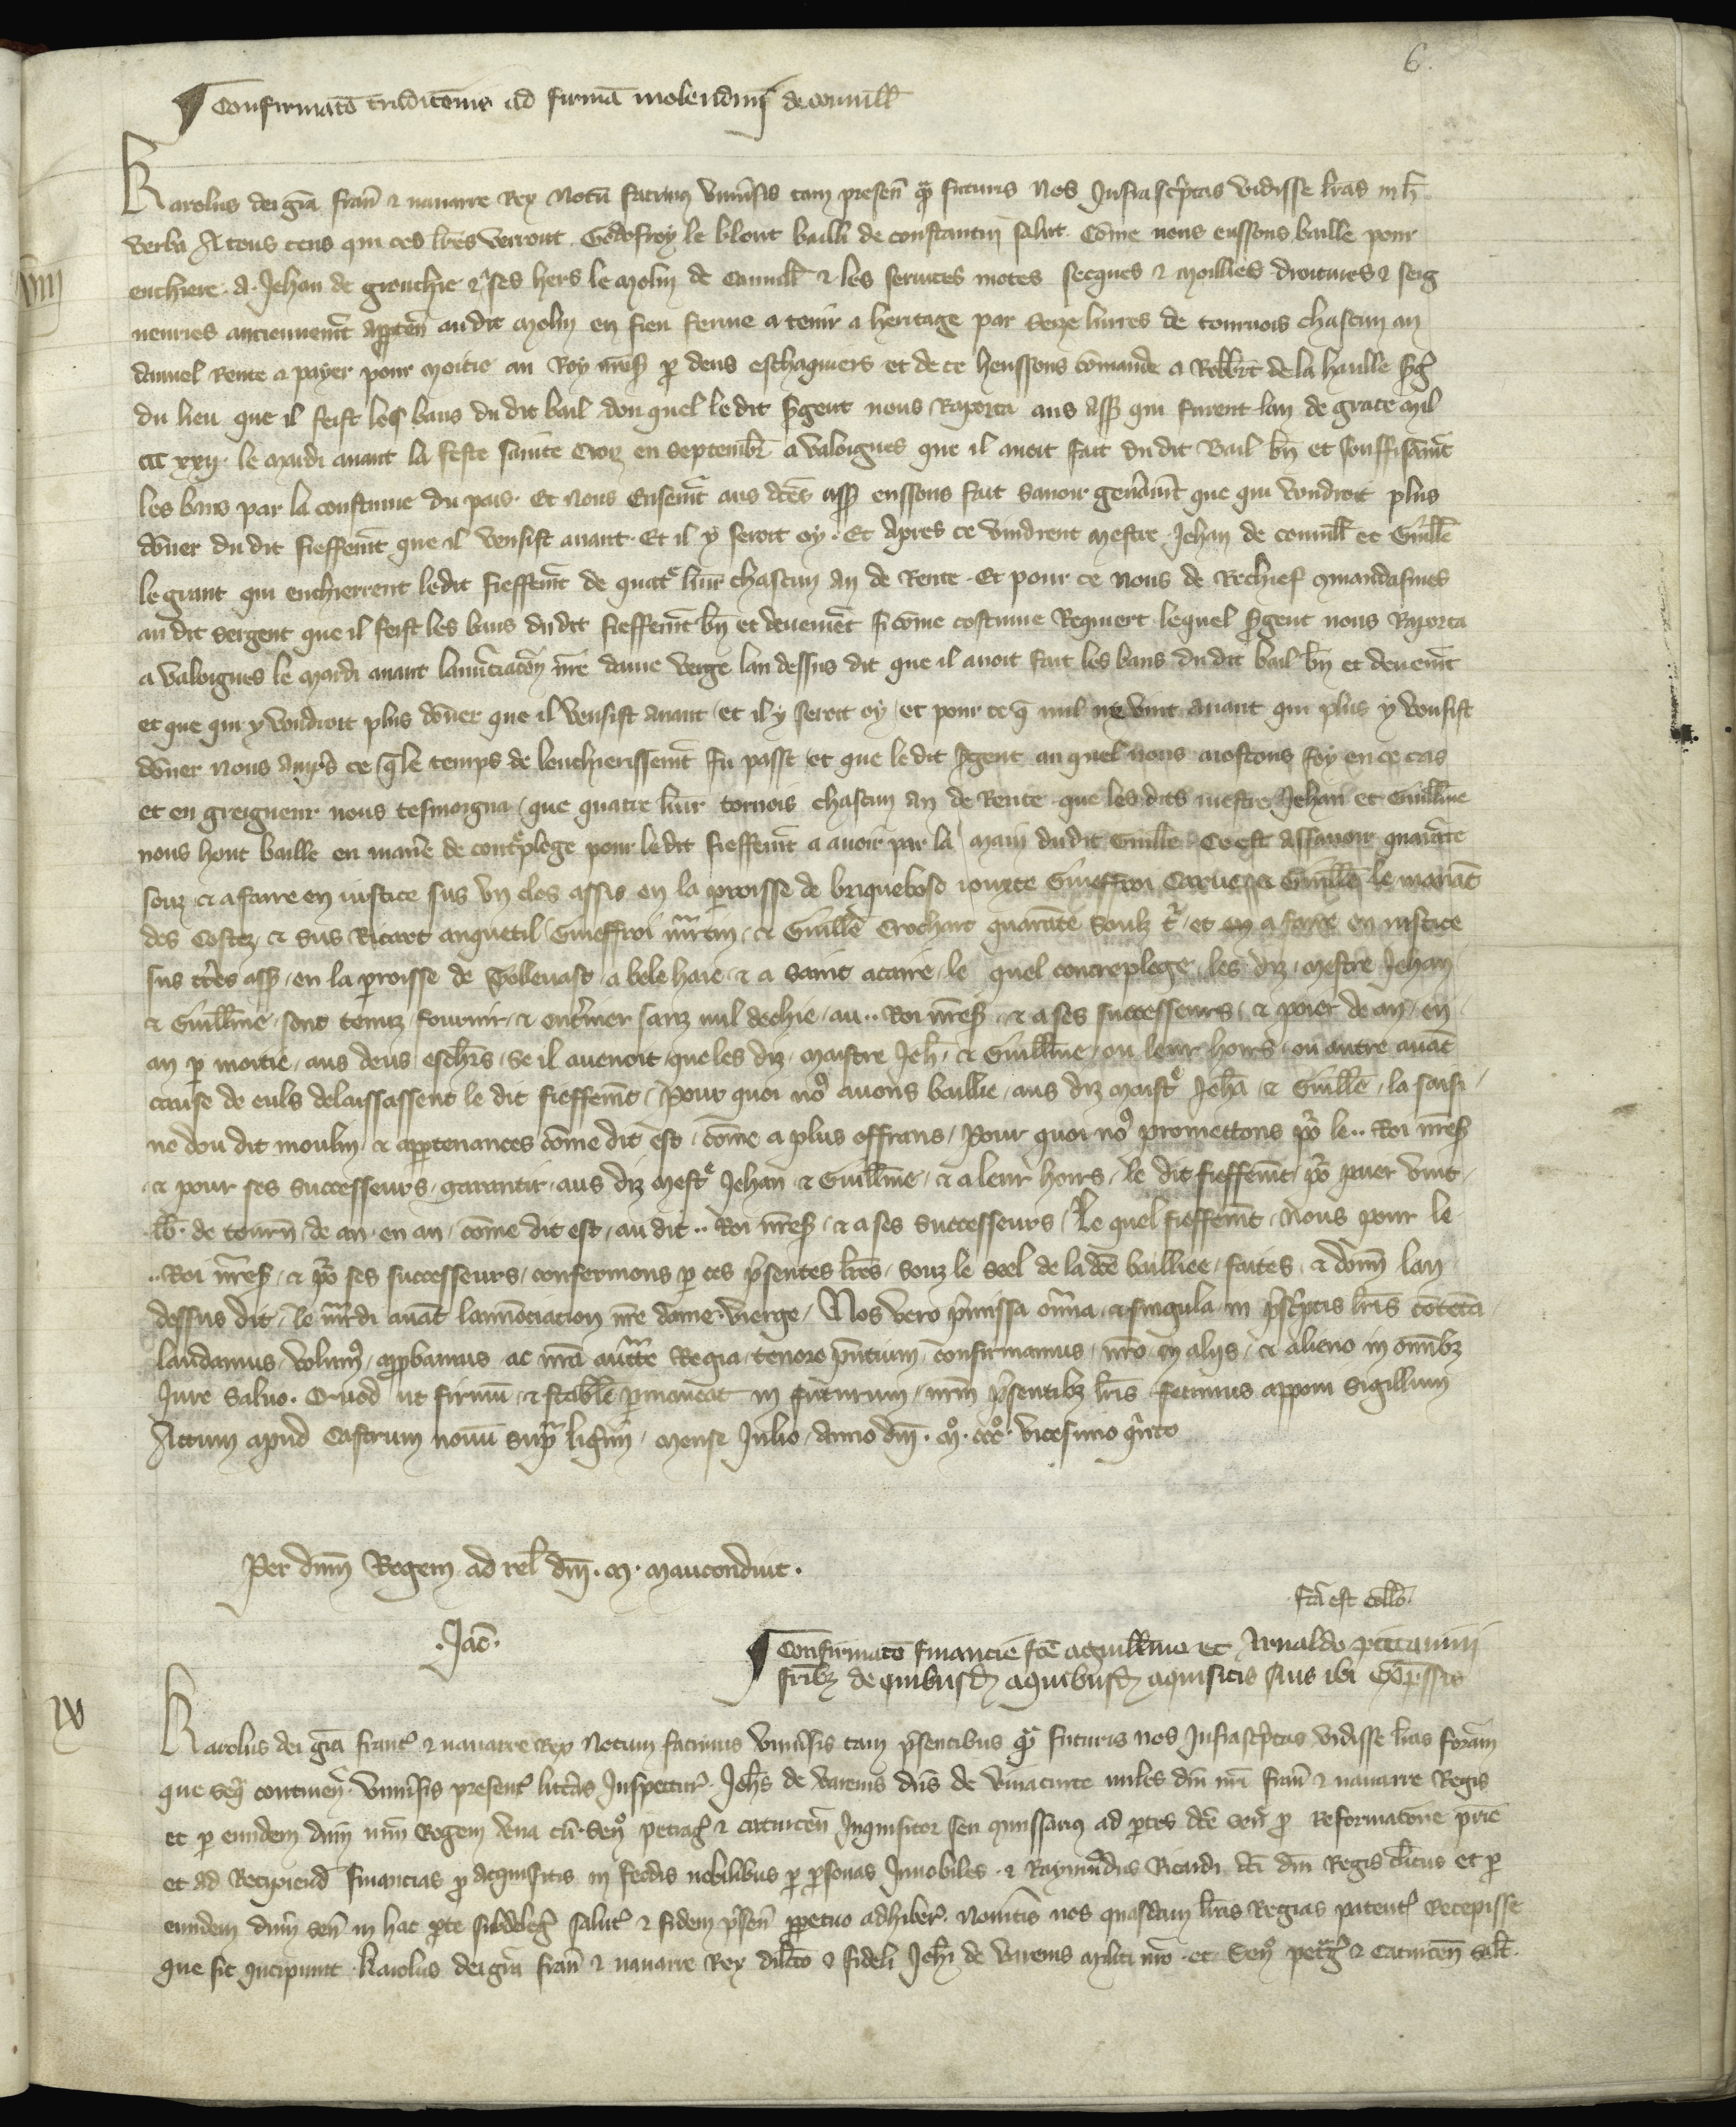 6.
Confirmatō traditōnis ad firmā molendinj de couuill̄
Karolus dei grā franc̄ & nauarre Rex Notū facim9 vniūsis tam presen̄ q̄ futuris Nos Infrascͥptas vidisse lrās in h̄
verba A tous ceus qui ces lrēs verront Godefroy le blont bailli de constantin salut Cōme nous eussons baille pour
enchiere a Jehan de grouchie & a ses hers le molin de Couuill̄ & les seruices motes secques & moillies droitures & seig
neuries anciennemt̄ apparten̄ au dit molin en fieu ferme a tenir a heritage par Seze liures de tournois chascun an
dannel Rente a payer pour moitie au Roy nrēs̄ p deus eschaquiers et de ce heussons cōmande a Robb̄t de la haulle s̄g
du lieu que il feist les bans du dit bail dou quel le dit s̄gent nous Raporta aus ass̄ qui furent lan de grace mil
ccc xxij. le mardi auant la feste sainte Croiz en septembr̄ a valoignes que il auoit fait du dit Bail bn̄ et souffisāmt̄
les bans par la coustume du pais. Et nous Ensemt̄ aus dc̄es ass̄ eussons fait sauoir genāmt̄ que qui voudroit plus
dōner du dit fieffemt̄ que il vensist auant. Et il y seroit oy. Et apres ce vindrent mestre Jehan de couuill̄ et Guill̄e
le grant qui enchierrent le dit fieffemt̄ de quatͤ liūr chascun an de Rente. Et pour ce nous de Rechief cmandasmes
au dit sergent que il feist les bans du dit fieffemt̄ bn̄ et deuemēt si cōme costume Requiert lequel s̄gent nous Raporta
a valoignes le mardi auant lanūciatiōn nrē dame verge lan dessus dit que il auoit fait les bans du dit bail bn̄ et deuemt̄
et que qui y voudroit plus dōner que il vensist auant et il y seroit oy et pour ce q̄ nul ne vint auant qui plus y vousist
dōner nous auprs̄ ce q̄ le temps de lenchierissemt̄ fu passe et que le dit s̄gent au quel nous aioustons foy en ce cas
et en greigneur nous tesmoigna que quatre liūr tornois chascun an de Rente que les dits mestre Jehan et Guill̄me
nous hont baille en manēre de contͤplege pour le dit fieffemt̄ a auoir par la main du dit Guill̄e Ce est assauoir quarāte
souz & a faire en iustice sus vn clos assis en la p̄roisse de briquebosc iouxte Gieffroi Carue & Guill̄e le mariāt
des Costez & sus Ricart anquetil Gieffroi mr̄tin & Guill̄e Crochart quarāte Soulz t̄r et en a faire en iustice
sus tr̄es ass̄ en la p̄roisse de Tolleuast a bele haie & a Saint acaire le quel contreplege les diz mestre Jehan
& Guill̄me sont tenuz fournir & ent̄riner sanz nul dechie au .. Roi nrēs̄ & a ses successeurs & poier de an en
an p moitie aus deus eschr̄s se il auenoit que les diz maistre Jeh̄ & Guill̄me ou leur hoirs ou autre auāt
cause de euls delaissassent le dit fieffemt̄ Pour quoi no9 auons baillie aus diz maistͤ Jehā & Guill̄e la saisi
ne dou dit moulin & appartenances cōme dit est cōme a plus offrans Pour quoi no9 promettons po᷑ le .. Roi nrēs̄
& pour ses successeurs garantir aus diz mestͤ Jehan & Guill̄me & a leur hoirs le dit fieffemt̄ po᷑ paier vint
lb̄. de tourn̄ de an en an cōme dit est au dit .. Roi nrēs̄ & a ses successeurs Le quel fieffemt̄ Nous pour le
.. Roi nrēs̄ & po᷑ ses successeurs confermons p ces p̄sentes lrēs Souz le Seel de la dc̄e bailliee faites & donn̄ lan
dessus dit le mr̄di auāt lannōciacion nrē dame vierge Nos vero p̄missa om̄ia & singula in p̄scͥptis lrīs cōtēta
laudamus volum9 approbamus ac nrā auctte Regia tenore p̄ntium confirmamus nrō in alijs & alieno in omībz
Jure saluo. Quod ut firmū & stabile p̄maneāt in futurum nrm̄ p̄sentibz lrīs fecimus apponi sigillum
Actum apud Castrum nouū supra ligim̄ mense Julio Anno dn̄i. mo. ccco. vicesimo qͣrto
Per dnm̄ Regem ad rel̄ dn̄i. M. Mauconduit.
fcā est collō.
.Jac̄.
Confirmatō financie fcē a guill̄mo et Arnaldo
frībz de quibusd̄ aquibusd̄ aquisitis suis ibi Exp̄ssis
IX
Karolus dei grā franc̄ & nauarre Rex Notum facimus vniūsis tam p̄sentibus q̄ futuris nos Infrascͥptas vidisse lrās formām
que seq̄ continen̄. vniūsis present̄ litt̄as Inspectur̄. Joh̄s de varenis dn̄s de vinacurte miles dn̄i nrī franc̄ & nauarre Regis
et p eundem dnm̄ nrm̄ Regem vna cū. Sen̄ petraḡ & caturcen̄ Inquisitor seu cmissarius ad p̄tes dc̄e sen̄ p Reformatōne p̄rie
et ad Recipiend̄ financias p acquisitis in feodis nobilibus p p̄sonas Innobiles & Raymūdus Ricardi dc̄i dn̄i Regis cl̄icus et p
eundem dnm̄ sen̄ in hac p̄te subdeleḡ salut̄ & fidem p̄sen̄ p̄petuo adhiber̄. Nouitis nos quasdam lrās Regias patent̄ Recepisse
que sic incipiunt Karolus dei grā franc̄ & nauarre Rex dilc̄to & fideli Joh̄i de varenis militi nrō et Sen̄ petraḡ & Caturcen̄ salt̄.